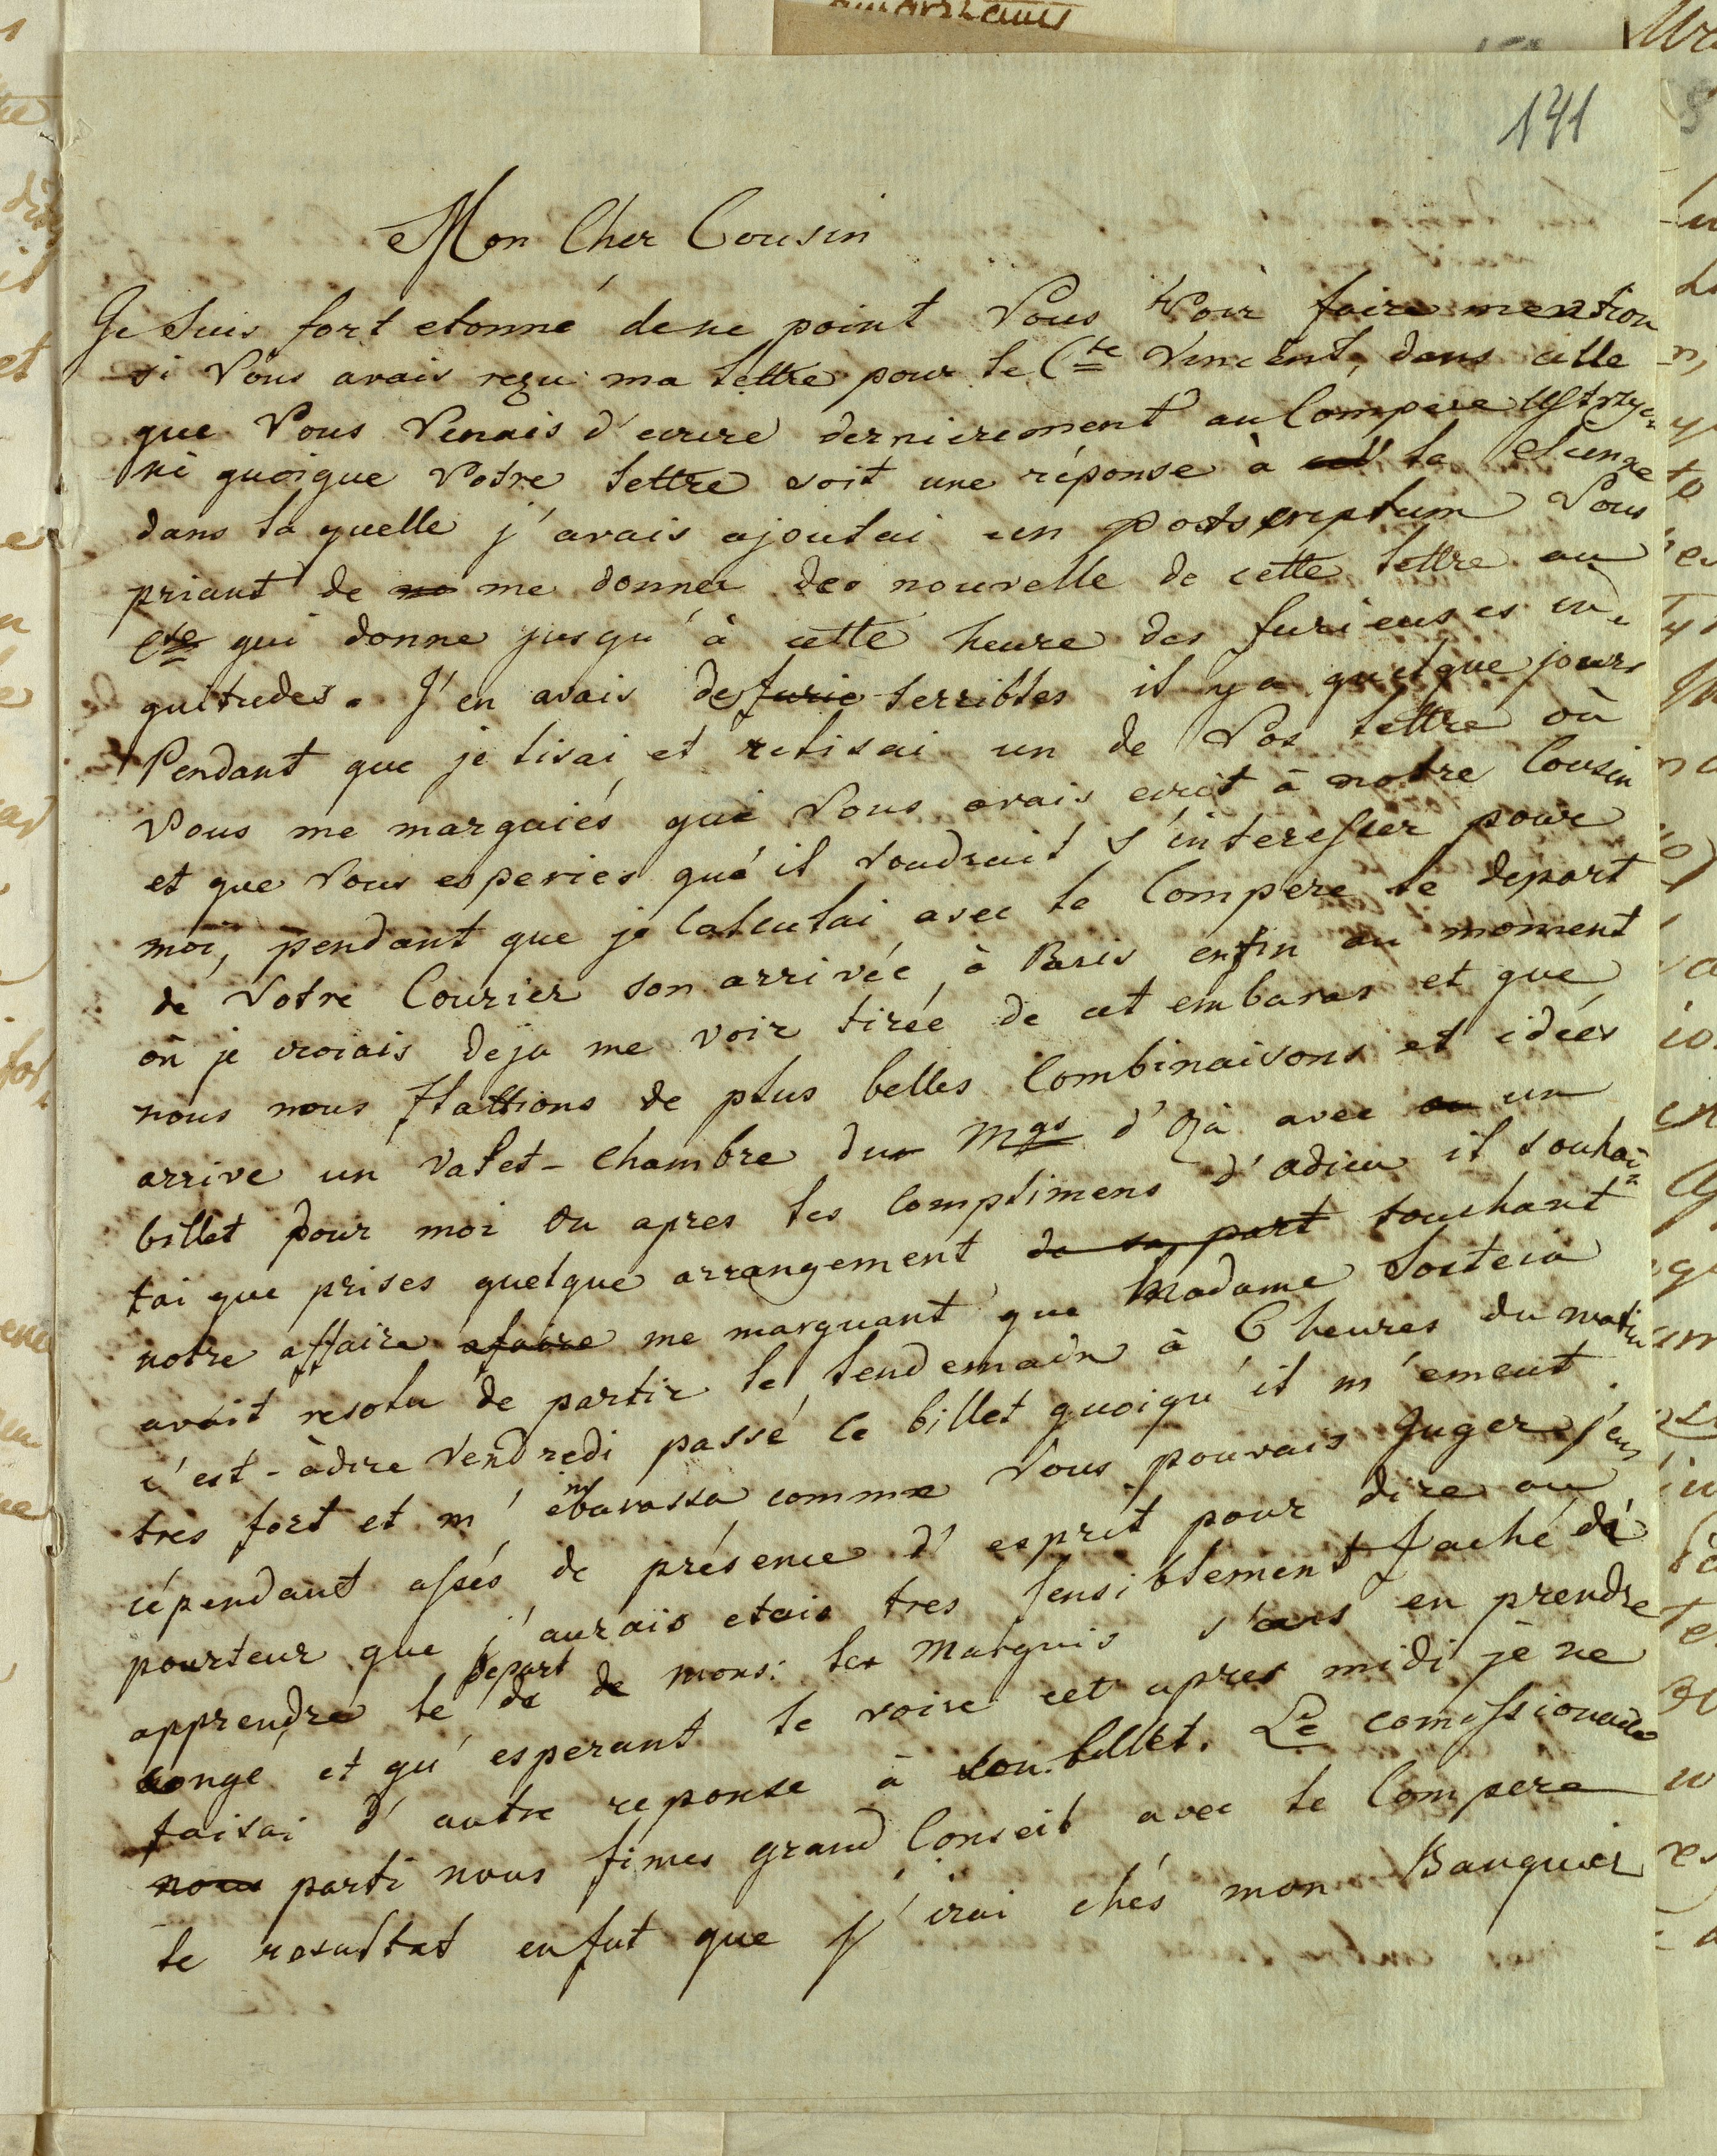 141
Mon Cher Cousin
Je suis fort etonné de ne point Vous Voir faire mention
si Vous avais reçu ma lettre pour le Cte Vincent, dans celle
que Vous Venais d'ecrire dernierement au Compere
ni quoique Votre lettre soit une réponse à la Sienne
dans la quelle j'avais ajoutai un postscreptum Vous
priant de me donner des nouvelle de cette lettre au
Cte qui donne jusqu'à cette heure des furieuses in=
quitudes. J'en avais des furie terribles il y a quelque jours
Pendant que je lisai et relisai un de Vos lettre où
Vous me marquiés que Vous avais ecrit à notre Cousin
et que Vous esperiés qu'il voudrait s'interesser pour
moi, pendant que je Calculai avec le Compere le depart
de Votre Courier son arrivée, à Paris enfin au moment
où je croiais deja me voir tirée de cet embaras et que
nous nous flattions de plus belles Combinaisons et idées
arrive un valet-chambre du Mgs d'Ozà avec un
billet pour moi ou apres les Complimens d'adieu il souhai=
tai que prises quelque arrangement de sa part touchant
notre affaire afaire me marquant que Madame Soiteia
avait resolu de partir le lendemain à 6 heures du matin
c'est-àdire Vendredi passé ce billet quoiqu'il m'emeut
tres fort et m'embarassa comme Vous pouvais Juger j'eus
cépendant assés de présence d'esprit pour dire au
pourteur que j'aurais etais tres sensiblement faché de
apprendre le depart de de mons: le Marquis s'ans en prendre
congé et qu'esperant le voire cet apres midi je ne
faisai d'autre reponse à son billet. Le comissionaire
nous parti nous fimes grand Conseil avec le Compere
le resultat en fut que j'irai chés mon Banquier